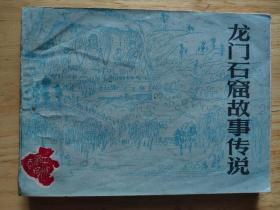 龙门石窟故事传说